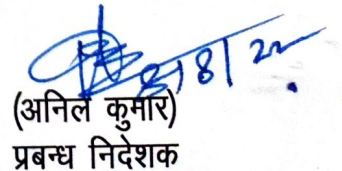 8/8/22
(अनिल कुमार)
प्रबन्ध निदेशक